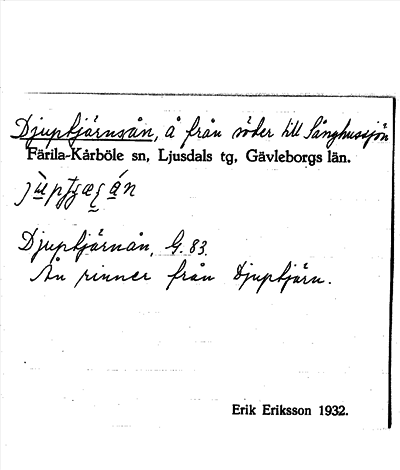 Djuptjärnsån, å från söder till Långhussjön
Färila-Kårböle sn, Ljusdals tg, Gävleborgs län.
Djuptjärnån, G. 83.
Ån rinner från Djuptjärn.
Erik Eriksson 1932.